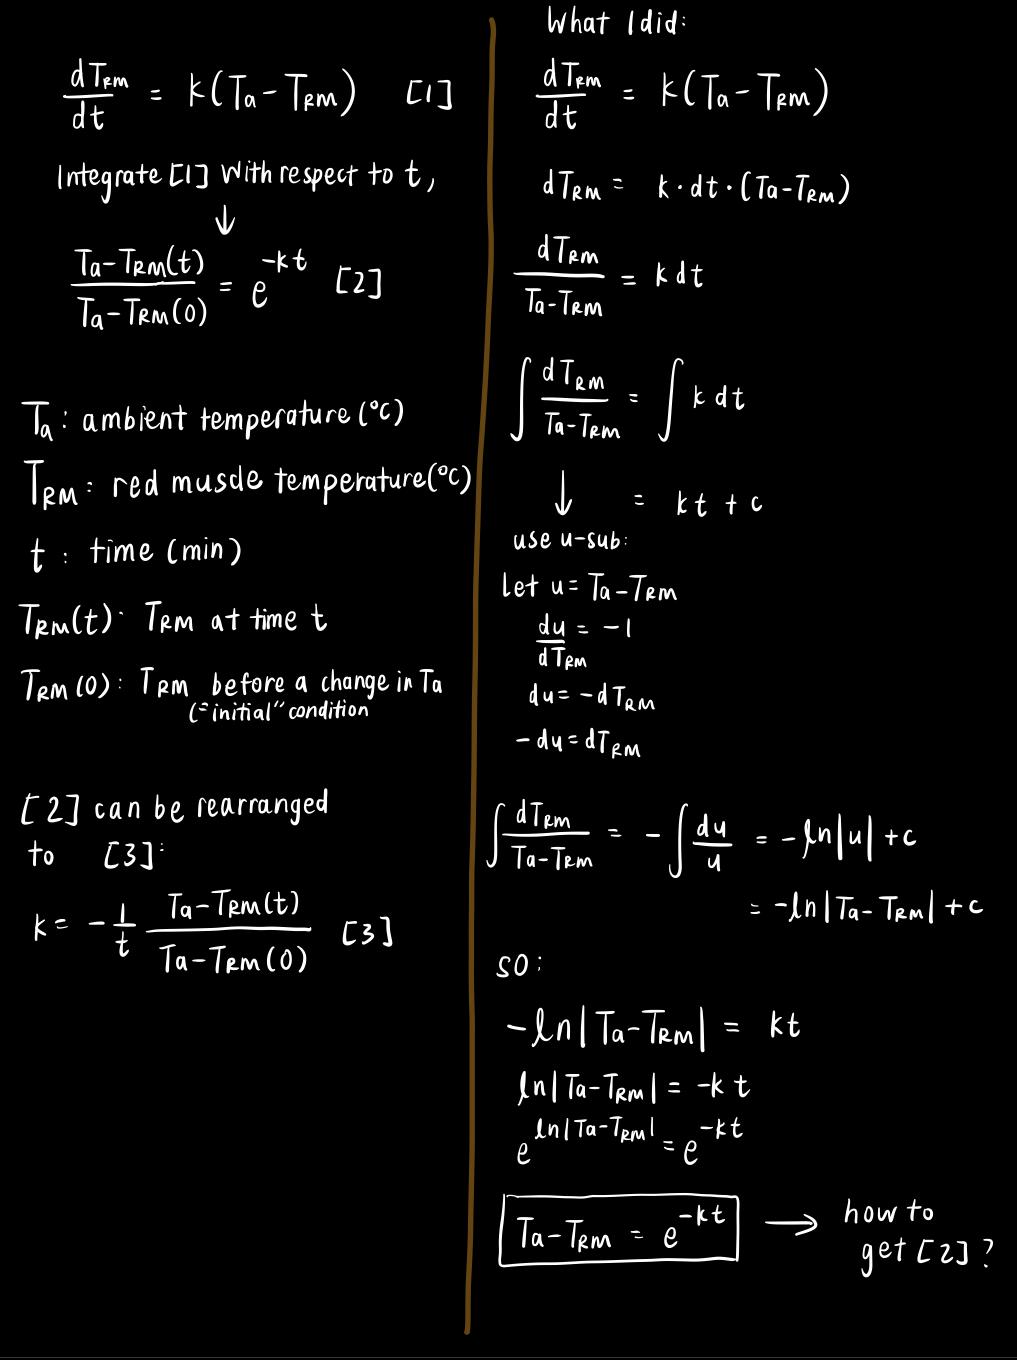 dT_RM/dt = k(Ta - T_RM) [1]
Integrate [1] with respect to t,
↓
Ta-T_RM(t)/Ta-T_RM(0) = e^-kt [2]
Ta: ambient temperature (°C)
T_RM: red muscle temperature (°C)
t: time (min)
T_RM(t): T_RM at time t
T_RM(0): T_RM before a change in Ta
(="initial" condition
[2] can be rearranged
to [3]:
k = -1/t Ta-T_RM(t)/Ta-T_RM(0) [3]
What I did:
dT_RM/dt = k(Ta - T_RM)
dT_RM = k·dt·(Ta-T_RM)
dT_RM/Ta-T_RM = k dt
∫ dT_RM/Ta-T_RM = ∫ k dt
↓ = kt + c
use u-sub:
Let u = Ta-T_RM
du/dT_RM = -1
du = -dT_RM
-du = dT_RM
∫ dT_RM/Ta-T_RM = -∫ du/u = -ln|u| + c
= -ln|Ta-T_RM| + c
so:
-ln|Ta-T_RM| = kt
ln|Ta-T_RM| = -kt
e^ln|Ta-T_RM| = e^-kt
Ta-T_RM = e^-kt → how to
get [2]?